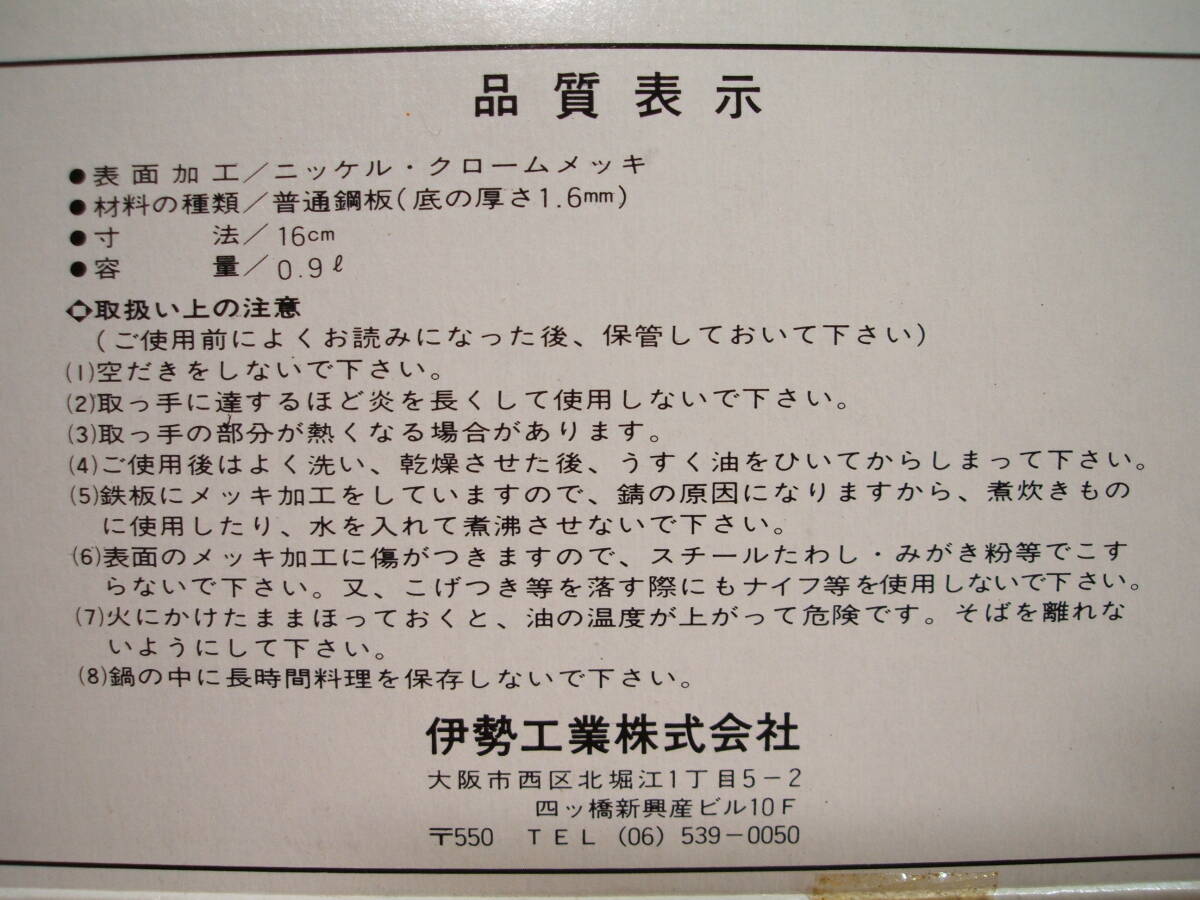 品質表示
●表面加工／ニッケル・クロームメッキ
●材料の種類／普通鋼板(底の厚さ1.6mm)
●寸　　　法／16cm
●容　　　量／0.9ℓ
◇取扱い上の注意
(ご使用前によくお読みになった後、保管しておいて下さい)
(1)空だきをしないで下さい。
(2)取っ手に達するほど炎を長くして使用しないで下さい。
(3)取っ手の部分が熱くなる場合があります。
(4)ご使用後はよく洗い、乾燥させた後、うすく油をひいてからしまって下さい。
(5)鉄板にメッキ加工をしていますので、錆の原因になりますから、煮炊きもの
に使用したり、水を入れて煮沸させないで下さい。
(6)表面のメッキ加工に傷がつきますので、スチールたわし・みがき粉等でこす
らないで下さい。又、こげつき等を落す際にもナイフ等を使用しないで下さい。
(7)火にかけたままほっておくと、油の温度が上がって危険です。そばを離れな
いようにして下さい。
(8)鍋の中に長時間料理を保存しないで下さい。
伊勢工業株式会社
大阪市西区北堀江1丁目5−2
四ッ橋新興産ビル10F
〒550　TEL (06) 539−0050